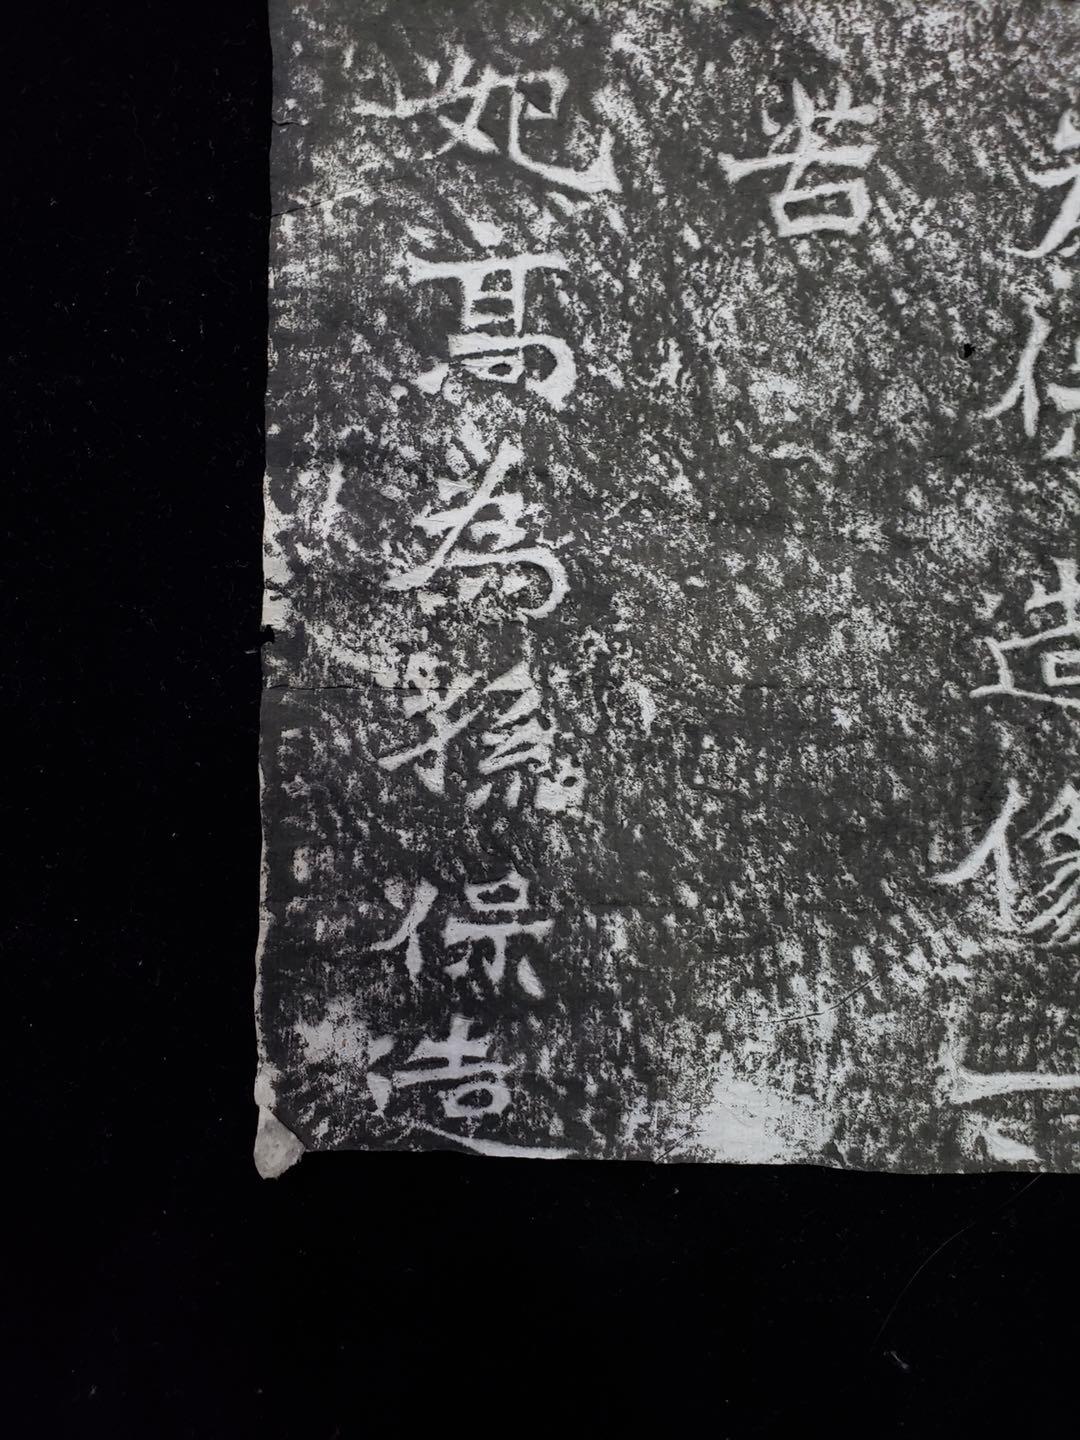 造像
苦
妃高為孫保造